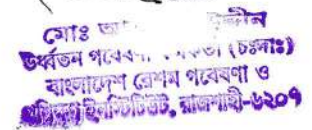 মোঃ
ঊর্ধ্বতন গবেষণা (চঃদাঃ)
বাংলাদেশ রেশম গবেষণা ও
প্রশিক্ষণ ইনস্টিটিউট, রাজশাহী-৬২০৭